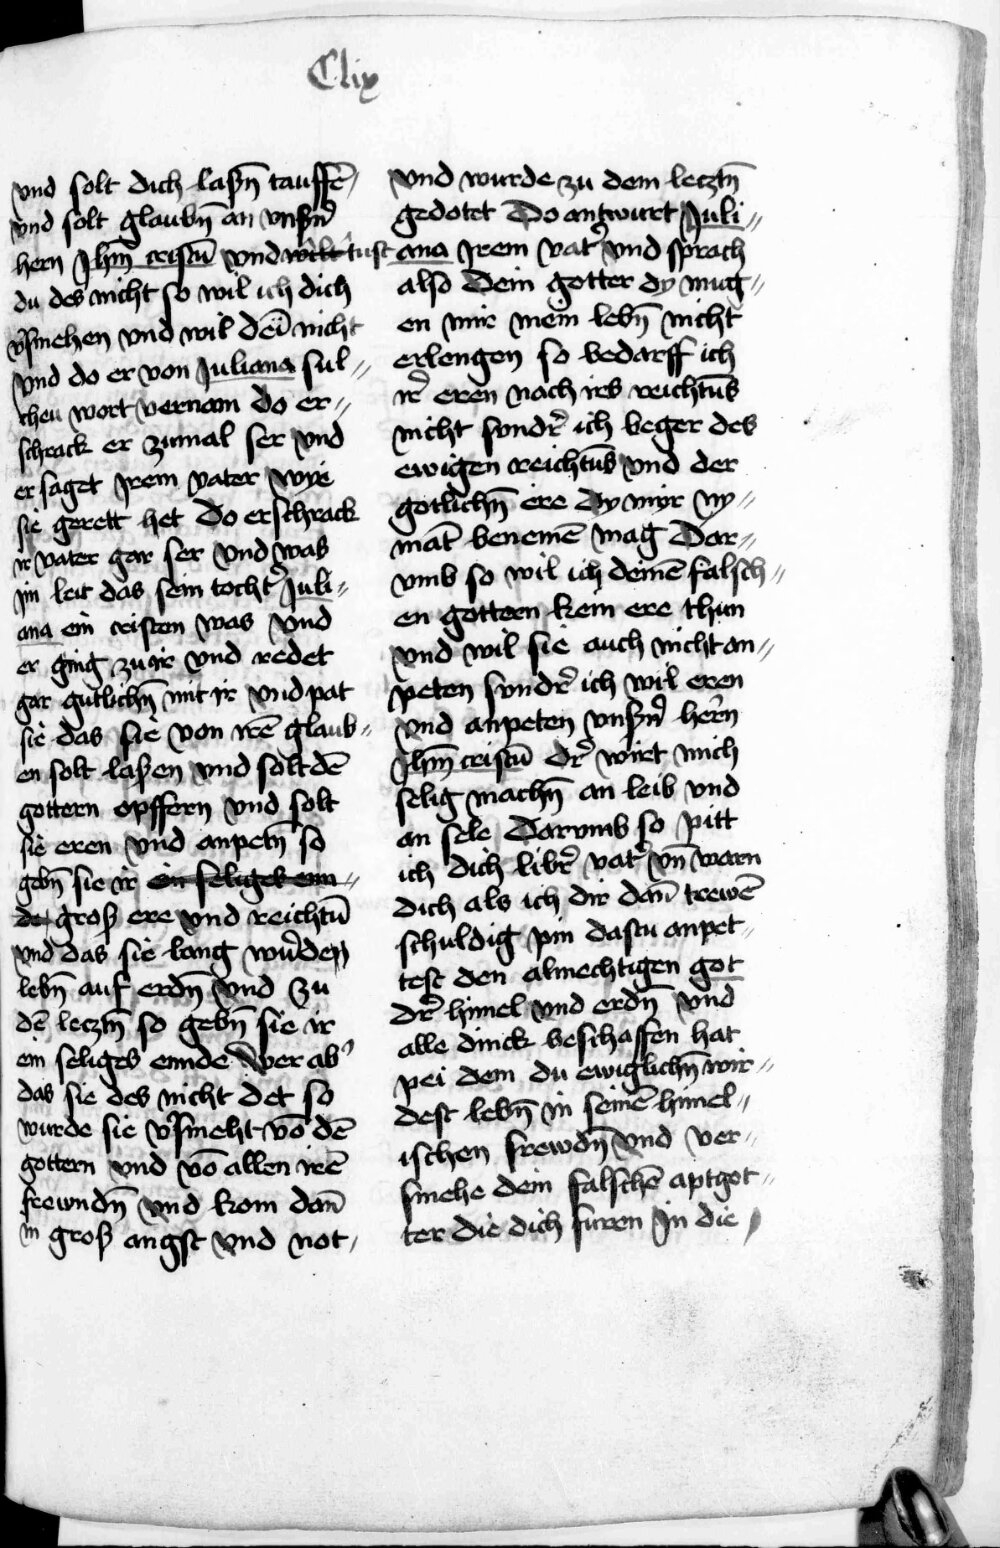 Clix
vnd solt dich laßn̄ tauffē
vnd solt glaubn̄ an vnßn̄
hern Jhm̄ cristū vnd wilt tust
du des nicht so wil ich dich
v̾smehen vnd wil dei nicht
vnd do er von Juliana sul〃
chen wort vernam do er〃
schrack er zumal ser vnd
er saget jrem vater wye
sie gerett het Do erschrack
ir vater gar ser vnd was
im leit das sein tocht̾ Juli〃
ana ein cristen was vnd
er ging zu ir vnd redet
gar gutlichn̄ mit ir vnd pat
sie das sie von irē glaub〃
en solt laßen vnd solt dē
gottern opffern vnd solt
sie eren vnd anpetn̄ so
gebn̄ sie ir ein seliges enn〃
de groß ere vnd reichtū
vnd das sie lang wurden
lebn̄ auf erdn̄ vnd zu
dē lecztn̄ so gebn̄ sie ir
ein seliges ennde Wer ab̾
das sie des nicht det so
wurde sie v̾smeht vō dē
gottern vnd vō allen irē
frewndn̄ vnd kom dan̄
in groß angst vnd not
vnd wurde zu dem lecztn̄
gedotet Do antwurt Juli〃
ana Jrem vat̾ vnd sprach
also Dein gotter dy mug〃
en mir mein lebn̄ nicht
erlengen so bedarff ich
ir̾ eren nach irs reichtūs
nicht sundr̾ ich beger des
ewigen reichtūs vnd der
gotlichn̄ ere dy myr ny〃
māt benemē mag Dar〃
vmb so wil ich deinē falsch〃
en gottern kein ere thun
vnd wil sie auch nicht an〃
peten sundr̾ ich wil eren
vnd anpeten vnßn̄ hern
Jhm̄ cristū dr̾ wirt mich
selig machn̄ an leib vnd
an sele Darvmb so pitt
ich dich libr̾ vat̾ vn̄ warn
dich als ich dir dan̄ trewē
schuldig pin dastu anpet〃
test den almechtigen got
dr̾ himel vnd erdn̄ vnd
alle dinck beschaffen hat
pei dem du ewiglichn̄ wir〃
dest lebn̄ in seinē himel〃
ischen frewdn̄ vnd ver〃
smehe dem falschē aptgot〃
ter die dich furen Jn die